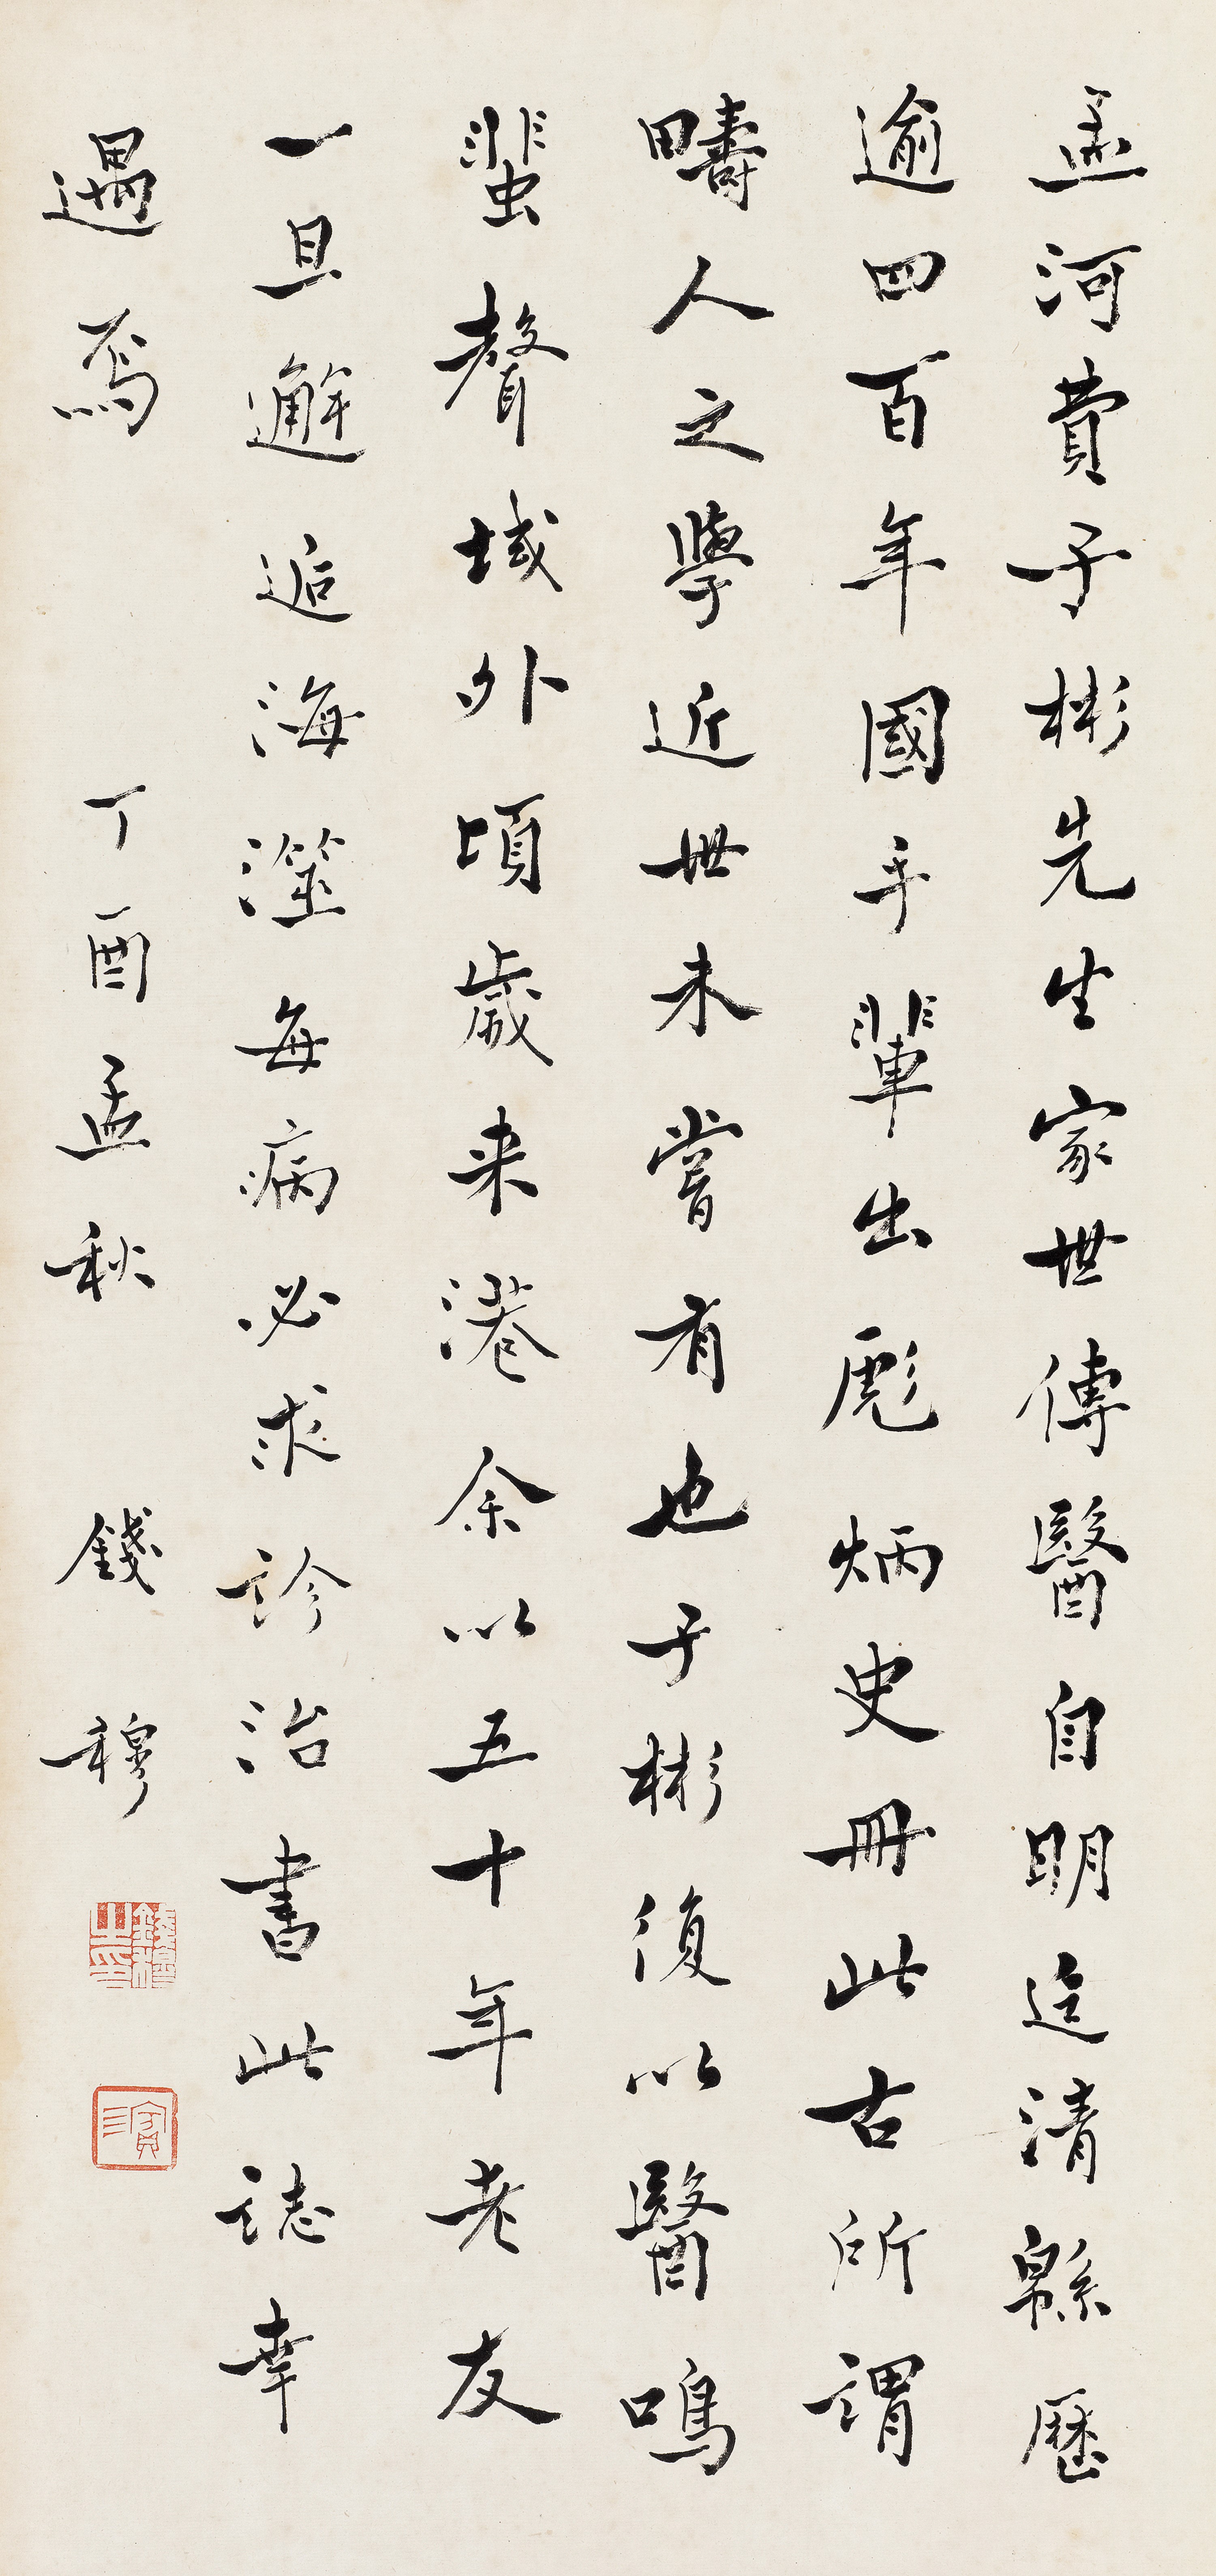 孟河費子彬先生家世傳醫自明迄清緜歷
逾四百年國手輩出彪炳史冊此古所謂
疇人之學近世未嘗有也子彬復以醫鳴
蜚聲域外頃歲来港余以五十年老友
一旦邂逅海澨每病必求診治書此誌幸
遇焉
丁酉孟秋 錢穆
錢穆之印
賓